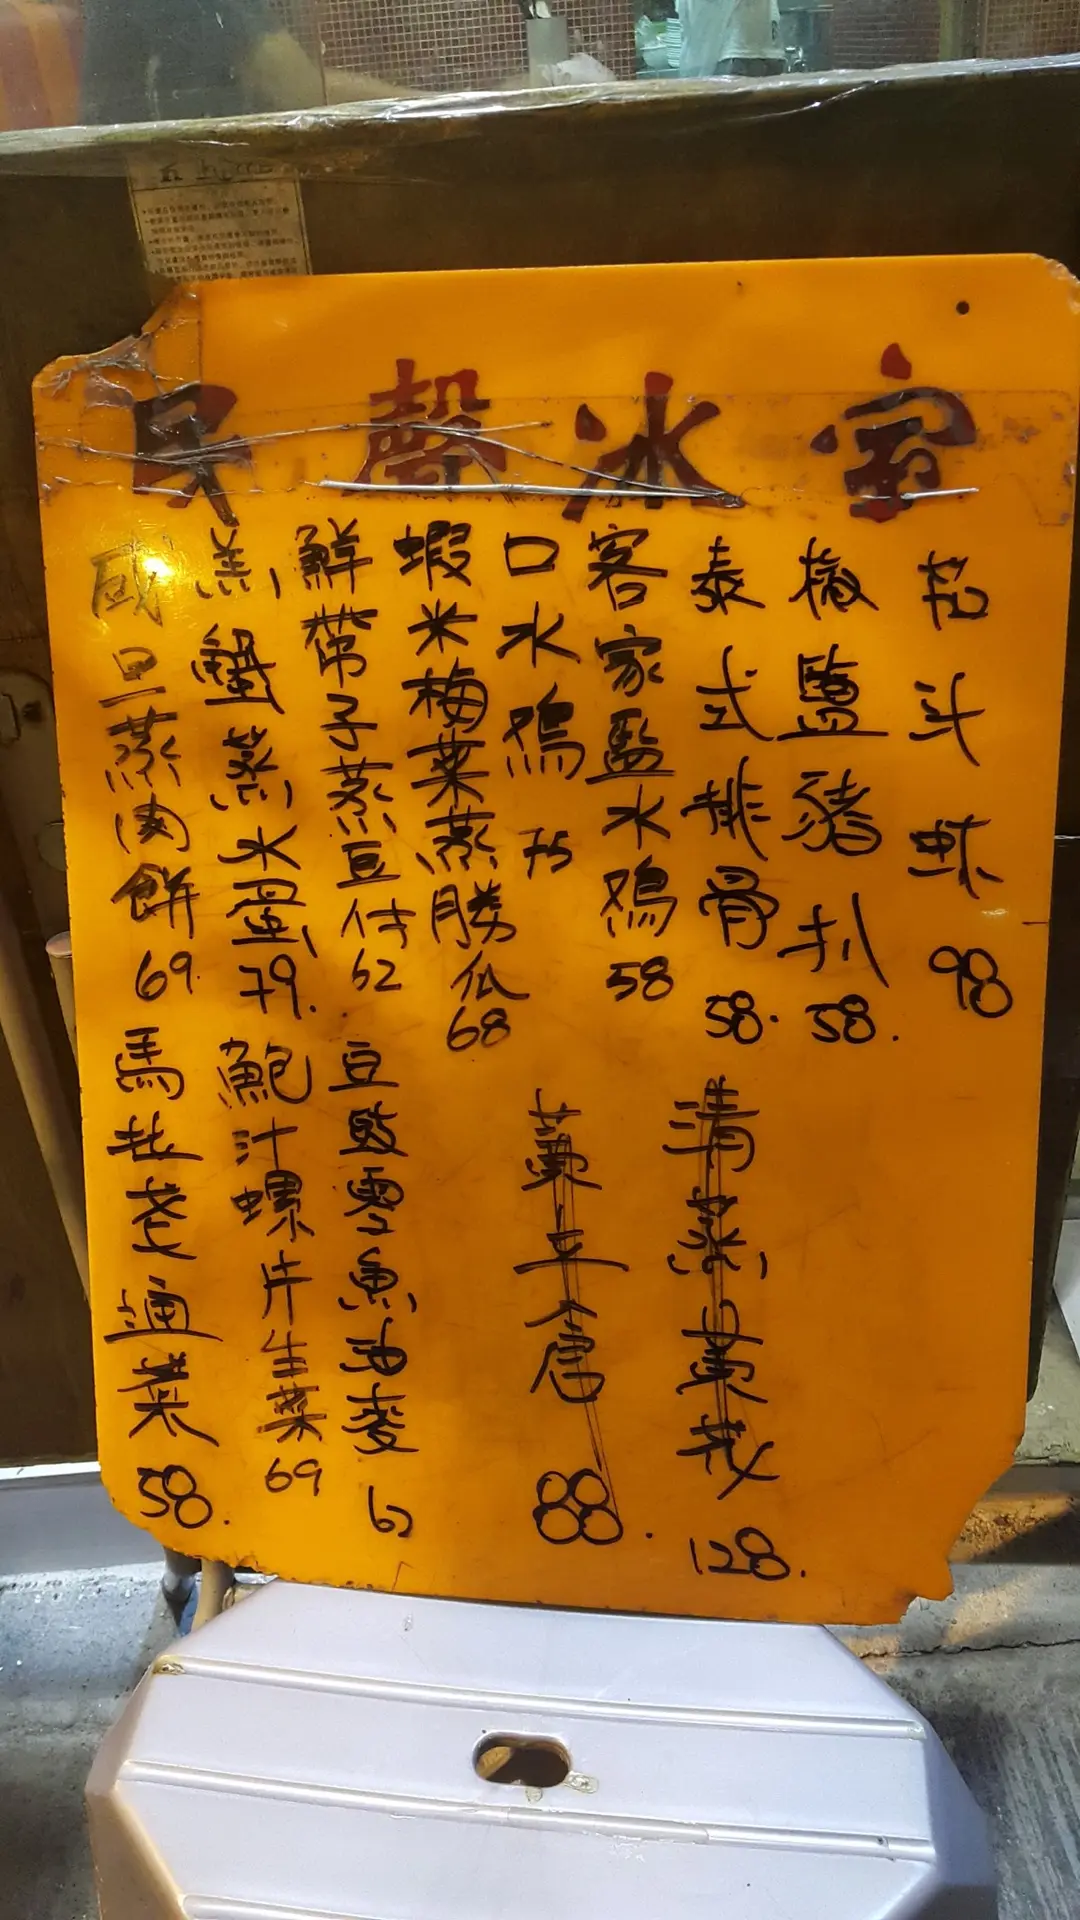 民聲冰室
98
椒鹽豬扒 58.
泰式排骨 58.
客家鹽水鸡 58
口水鸡 75
蝦米梅菜蒸勝瓜 68
鮮帶子蒸豆付 62
羔蟹蒸水蛋 79.
咸旦蒸肉餅 69.
清蒸黃 128.
黃立倉 88.
豆豉雪魚油麥 62
鮑汁螺片生菜 69
馬拉盞通菜 58.